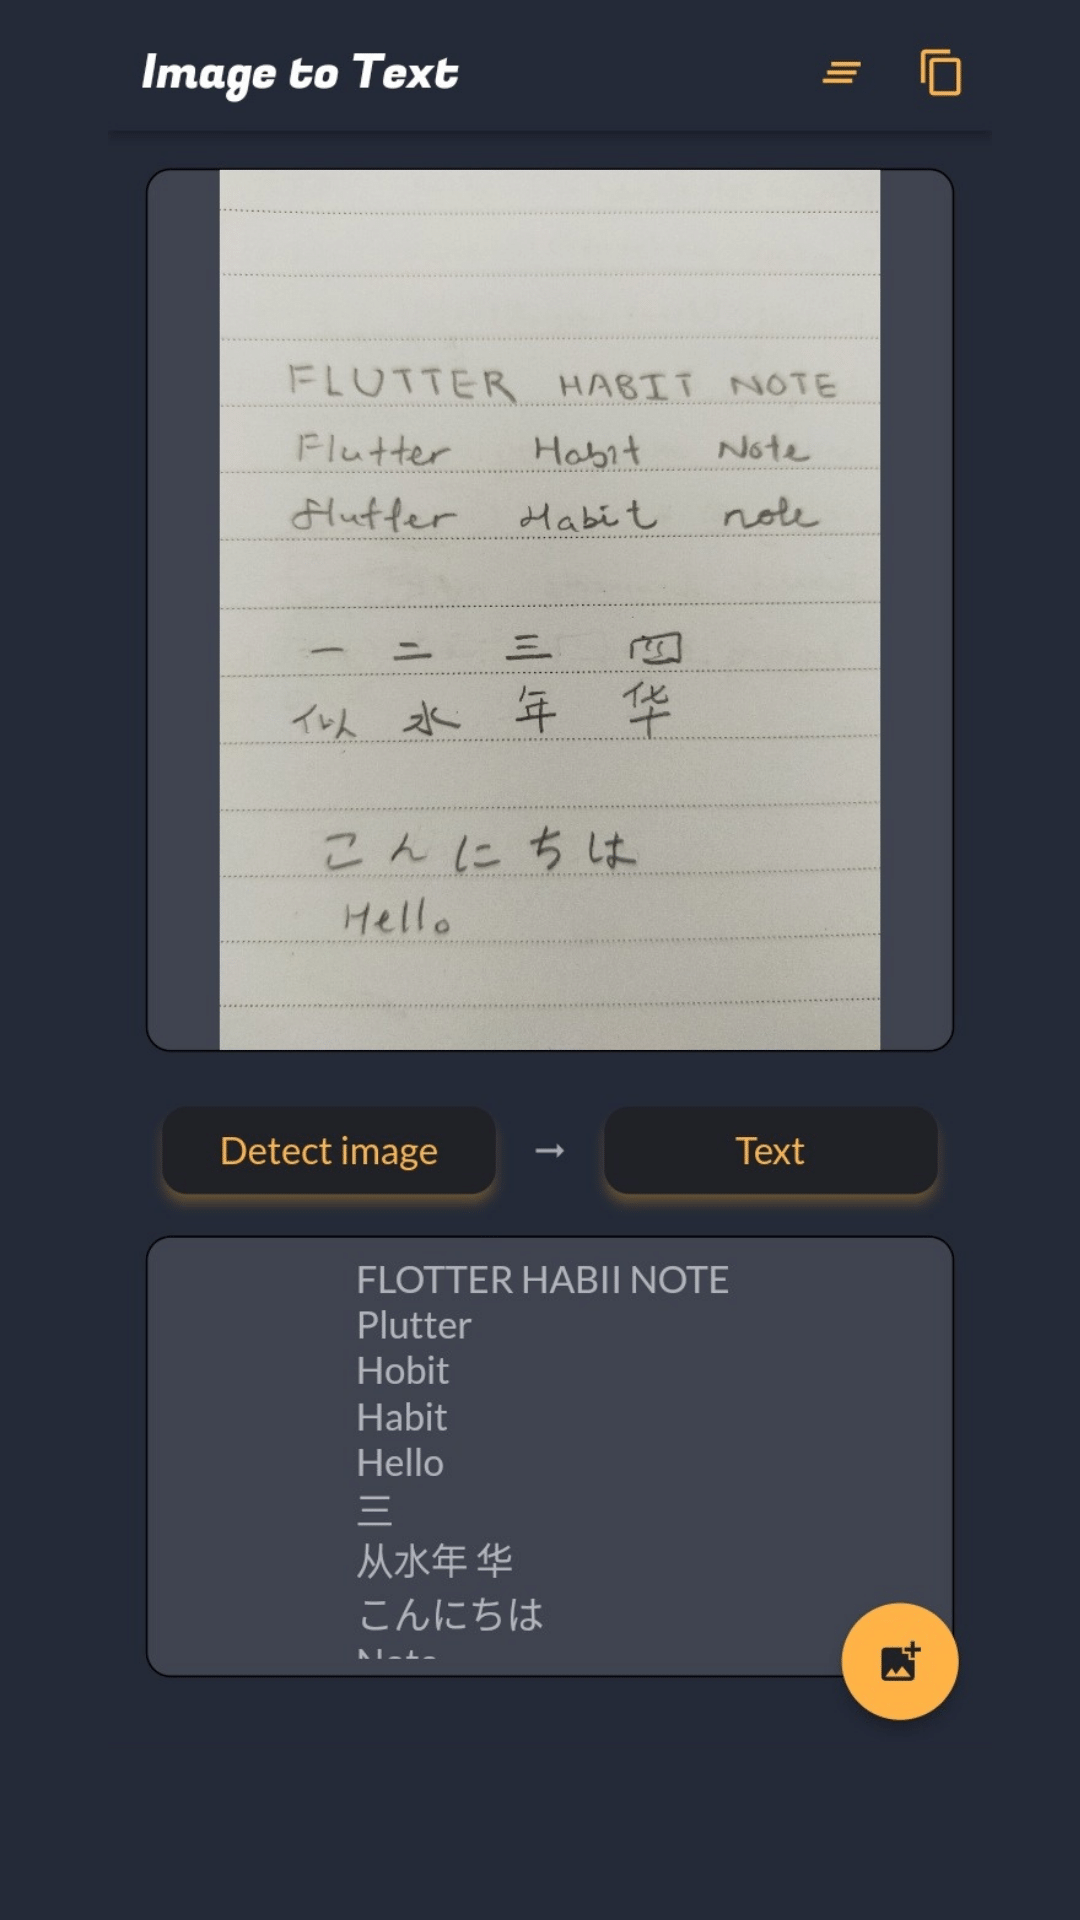 Image to Text
FLUTTER HABIT NOTE
Flutter Habit Note
flutter Habit note
一 二 三 四
似 水 年 华
こんにちは
Hello
Detect image → Text
FLOTTER HABII NOTE
Plutter
Hobit
Habit
Hello
三
从水年 华
こんにちは
Note